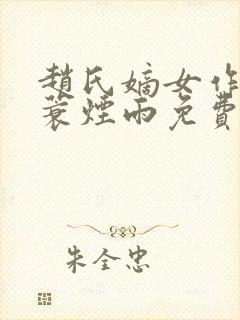 趙氏嫡女作
蓑煙雨免費
朱全忠